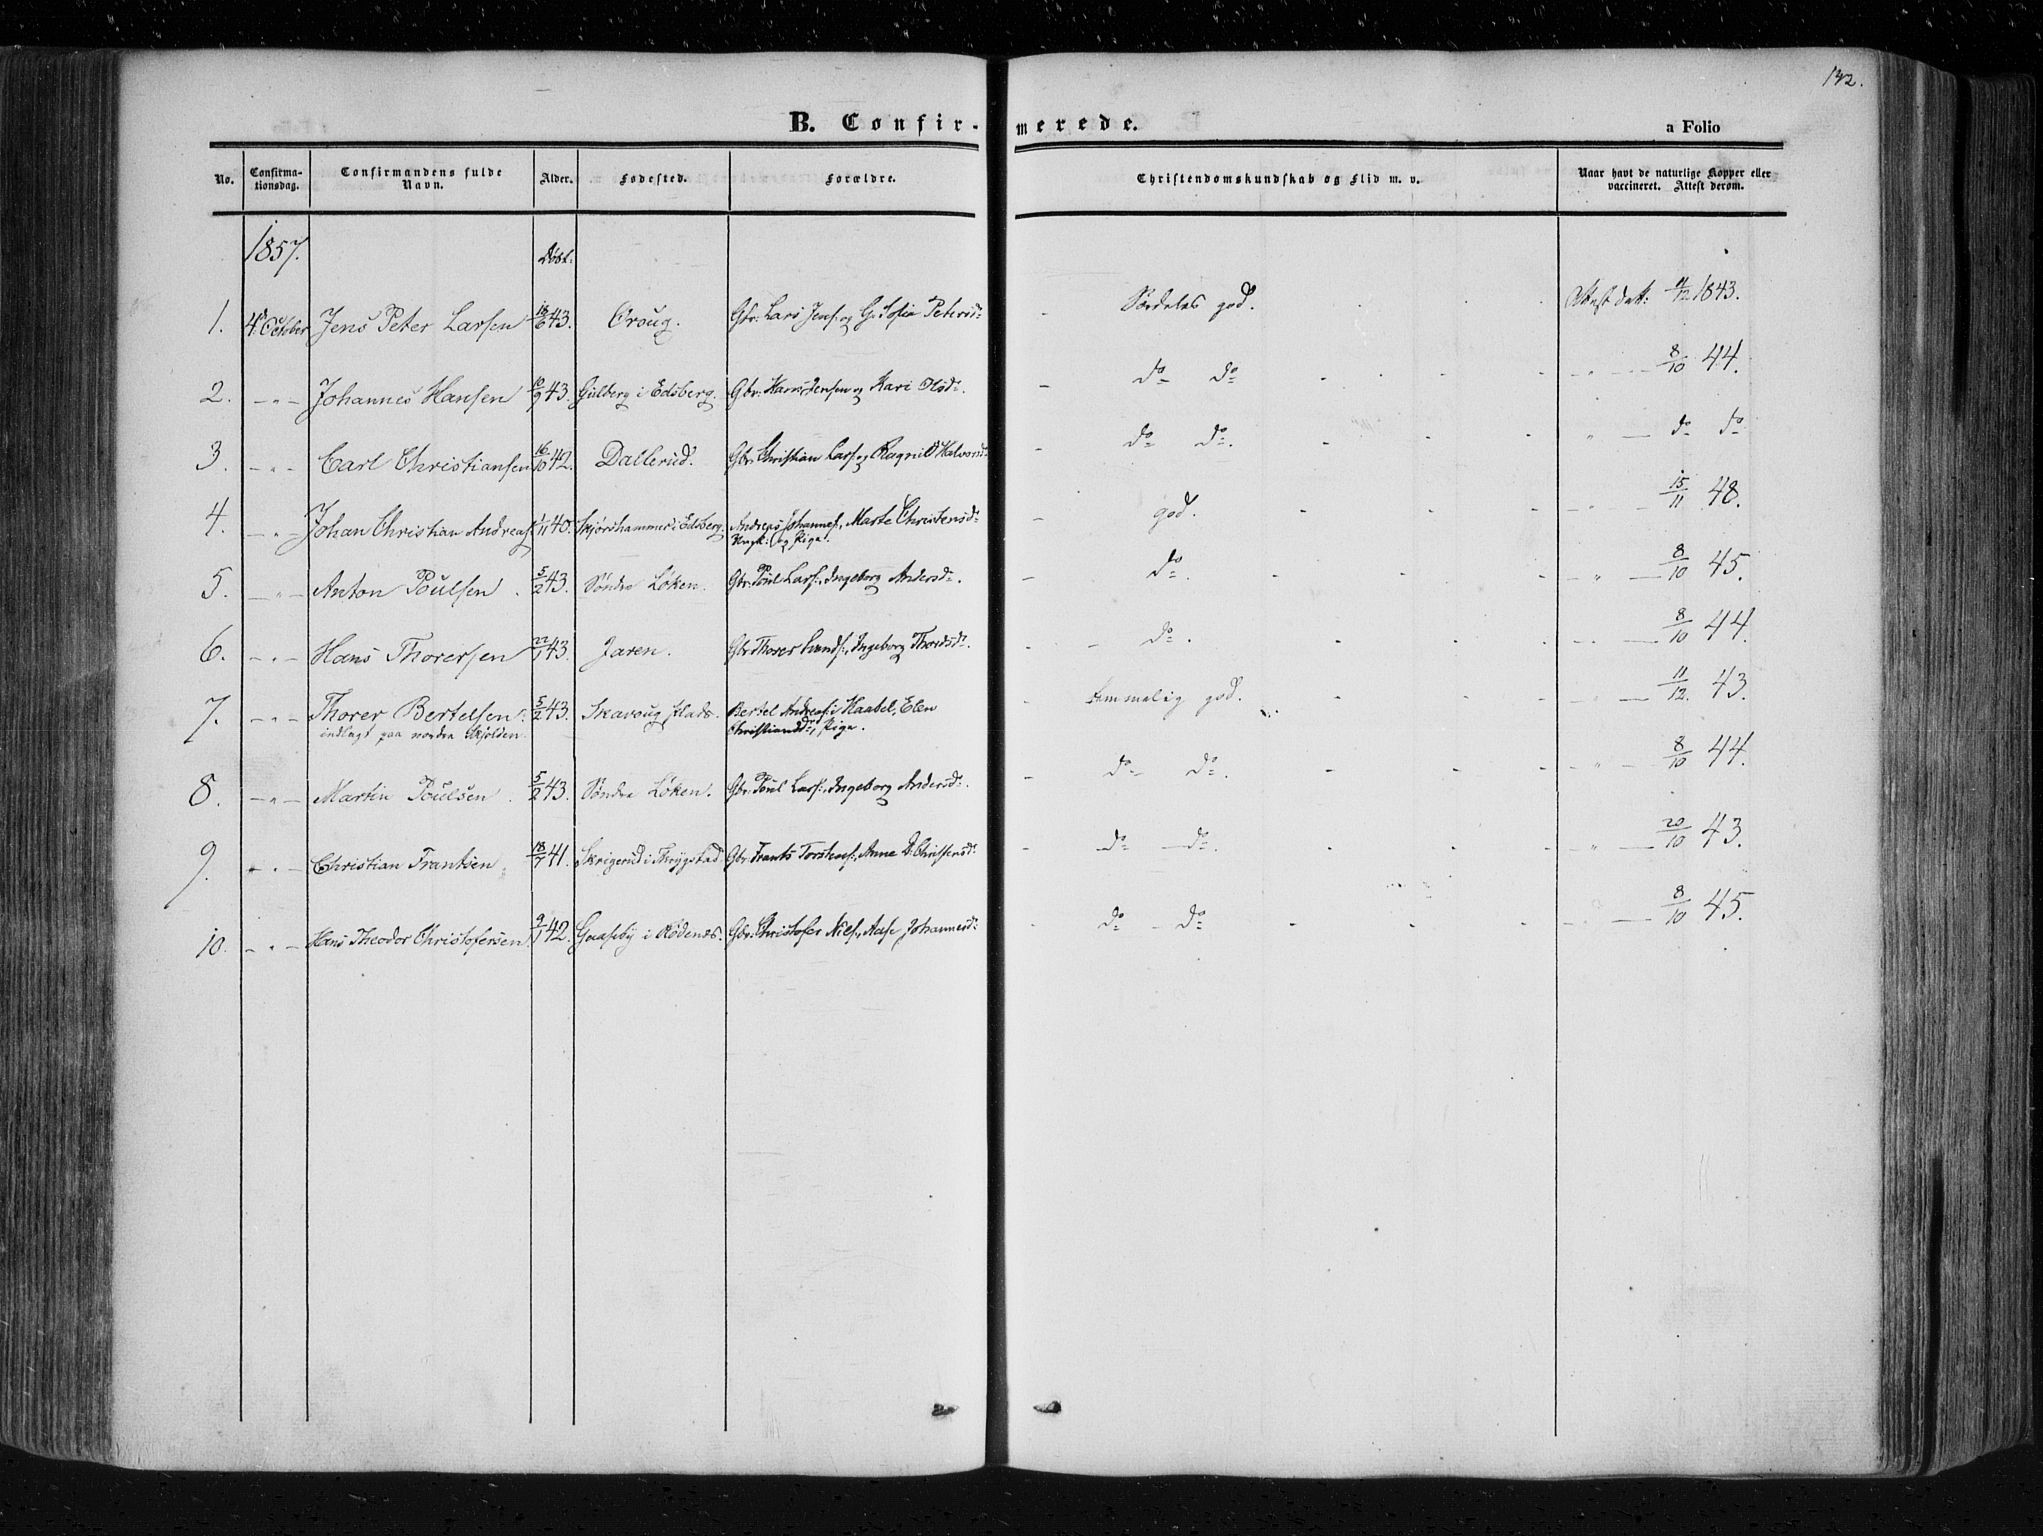 132.
B. Confir- merede.
a Folio
No. Confirma-tionsdag. Confirmandens fulde Navn. Alder. Fødested. Forældre. Christendomskundskab og Flid m. v. Naar havt de naturlige Kopper eller vaccineret. Attest derom.
1857. Døbt.
1. 4de October Jens Peter Larsen 43. Croug. Gbr: Lars Jens: og G. Sofia Petersd: Særdeles god. Attest dat: 1843.
2. - " - Johannes Hansen 10/9 43. Gulberg i Edsberg. Gbr: Hans Jensen og Kari Olsd: do do 8/10 44.
3. - " - Carl Christiansen 16/10 42. Dallerud. Gbr: Christian Lars: og Ragnild Halvorsd: do do. " - do do
4. - " - Johan Christian Andreas: 1/11 40. Skjørshammer i Edsberg. Andreas Johannes:, Marte Christensd:
Ungk: og Pige. god. 15/11 48.
5. - " - Anton Poulsen 5/2 43. Søndre Løken. Gbr: Poul Lars:, Ingeborg Andersd:. do. " - 8/10 45.
6. - " - Hans Thorersen 22/1 43. Jaren. Gbr: Thorer Amunds:, Ingeborg Thordsd:. do. 8/10 44.
7. - " - Thorer Bertelsen. 5/2 43. Skavoug Plads. Bertel Andreas: i Haabel, Elen temmelig god. " - 11/12. 43.
indlagt paa nordre Skjolden. Christiansd:, Pige.
8. - " - Martin Poulsen. 5/2 43. Søndre Løken. Gbr: Poul Lars:, Ingeborg Andersd:. do do. " - 8/10 44.
9. - " - Christian Frantsen 18/7 41. Skrigerud i Thrygstad Gbr: Frants Torstens:, Anne D. Christensd: do - do. " - 20/10 43.
10. - " - Hans Theodor Christofersen 9/1 42. Gaaseby i Rødenes. Gbr: Christofer Nils:, Aase Johannesd: do - do 8/10 45.